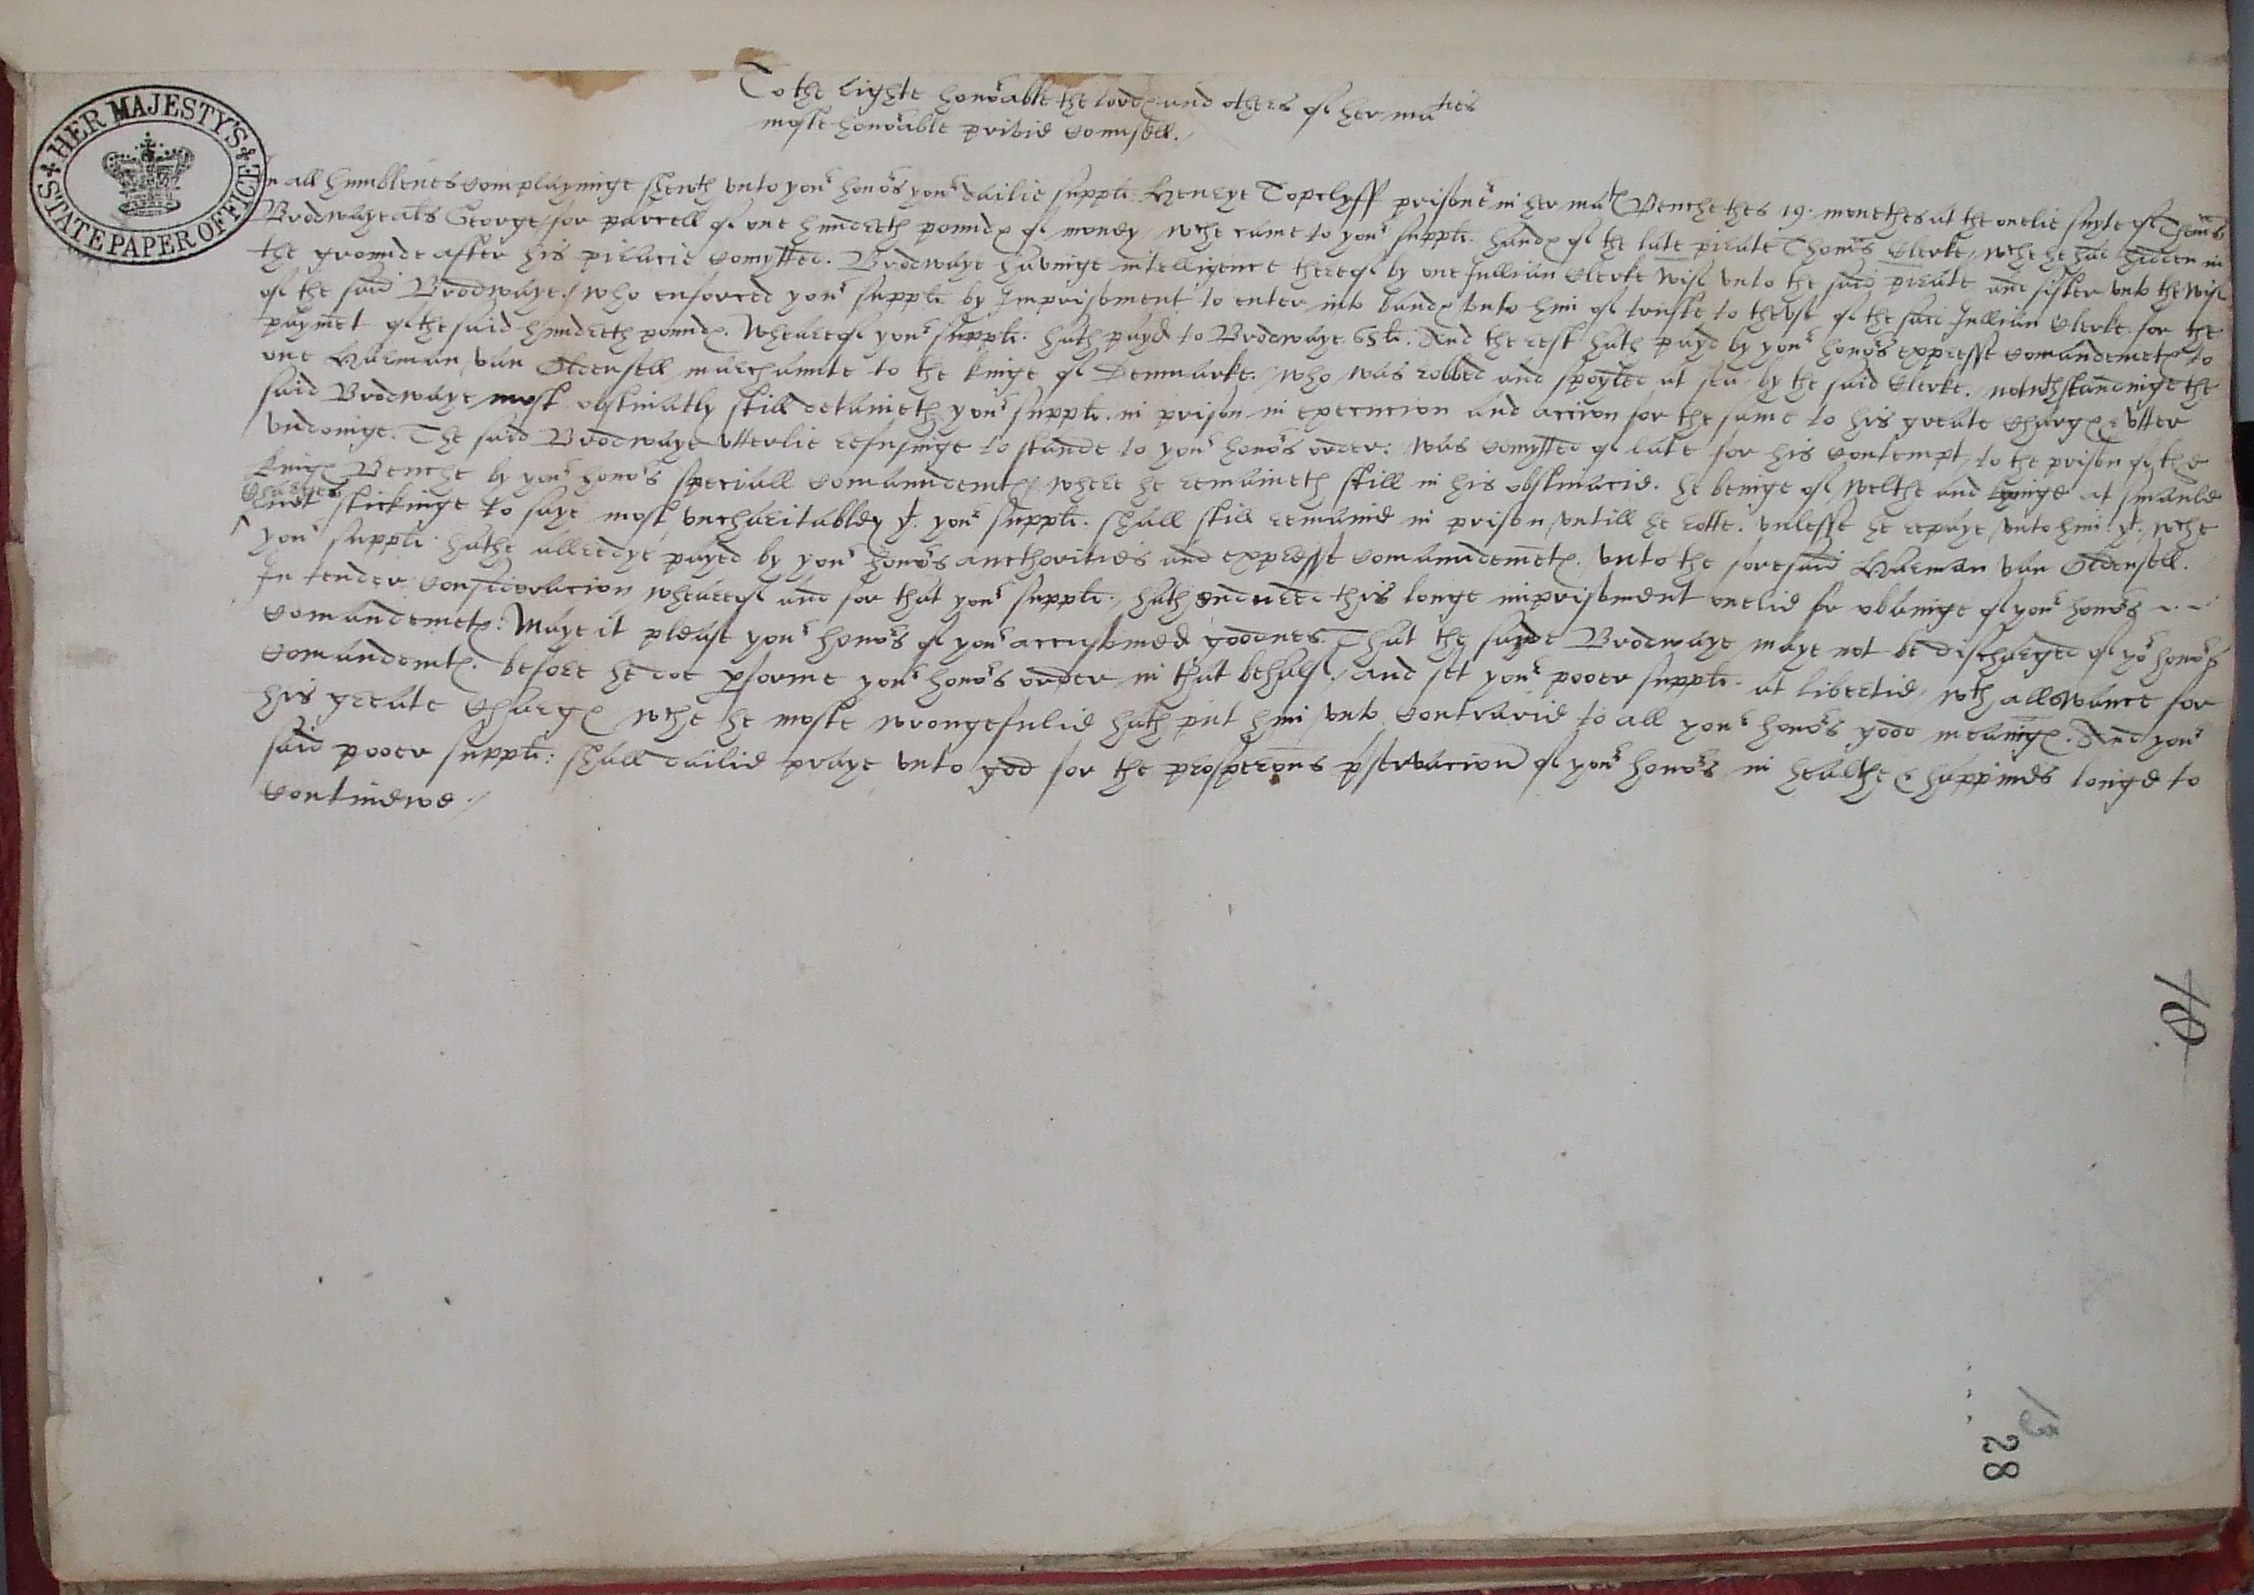 HER MAJESTY'S STATE PAPER OFFICE
To the righte honorable the lordes and others of her maties
moste honorable privie Counsell.
In all humblenes Complayninge sheweth unto your honors your dailie suppli. Henrye Topclyff prisoner in her mates Benche thes 19. monethes at the onelie suyte of Thoms
Brodwaye als George for parcell of one hundreth poundes of money wche came to your suppli. handes of the late pirate Thoms Clerke, wche he had hidden in
the grounde after his piracie Comytted. Brodwaye havinge intelligence thereof by one Jullian Clerke wife unto the said pirate and sister unto the wife
of the said Brodwaye./ who enforced your suppli by Imprisoment to enter into bandes unto him of truste to thuse of the said Jullian Clerke for the
paymet of the said hundreth poundes. Wheareof your suppli. hath payd to Brodwaye. 65li. And the rest hath payd by your honors expresse Comandemetes to
one Harman van Oldensell marchaunte to the kinge of Denmarke./ who was robbed and spoyled at sea by the said Clerke./ notwthstandinge the
said Brodwaye most obstinatly still detaineth your suppli. in prison in execucion and accion for the same to his greate Charges & utter
undoinge. The said Brodwaye utterlie refusinge to stande to your honors order: was Comytted of late for his Contempt, to the prison of the
kinges Benche by your honors speciall Comaundemtes/ where he remaineth still in his obstinacie. he beinge of welthe and lyinge at smaule
Charges
not stickinge to saye most uncharitabley yt. your suppli. shall still remaine in prison, untill he rotte. unlesse he repaye, unto him yt., wche
your suppli. hathe allredye payed by your honors aucthorities and expresse Comaundemetes. unto the foresaid Harman van Oldensell.
In tender Consideracion wheareof and for that your suppli., hath endured this longe imprisoment onelie for obainge of your honors
Comandemetes: Maye it please your honors of your accustomed goodnes. That the sayde Brodwaye maye not be discharged of yor honors
Comandemtes. before he doe performe your honors order in that behalf./ And set your pooer suppli. at libertie, wth allowance for
his greate Charges wche he moste wrongefulie hath put him unto Contrarie to all your honors good meaninges. And your
said pooer suppli: shall dailie praye unto god for the prosperous pservacion of your honors in healthe & happines longe to
Continewe./
28